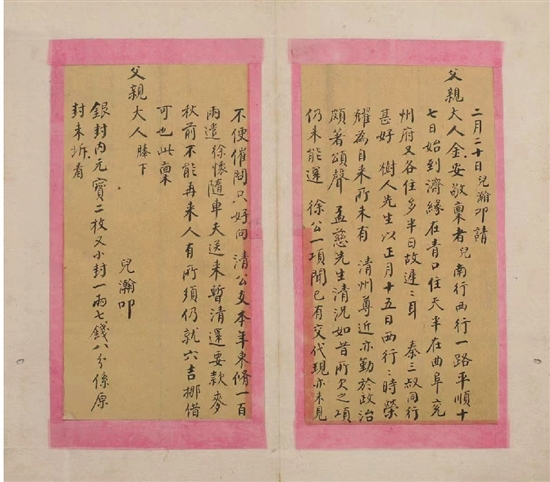 二月二十日兒瀚叩請
父親大人金安敬稟者兒南行西行一路平順十
七日始到濟緣在青口住天半在曲阜兗
州府又各住多半日故遲〻耳 秦三叔同行
甚好 樹人先生以正月十五日西行〻時榮
耀為自来所未有 清州尊近亦勤於政治
頗著頌聲 孟慈先生清況如昔所欠之項
仍未能還 徐公一項聞已有交代現亦未見
不便催問只好向 清公支本年束脩一百
兩遣徐懷隨車夫送来暫清還要款麥
秋前不能再来人有所須仍就六吉挪借
可也此稟
父親大人膝下
兒瀚叩
銀封內元寶二枚又小封一兩七錢八分係原
封未拆看